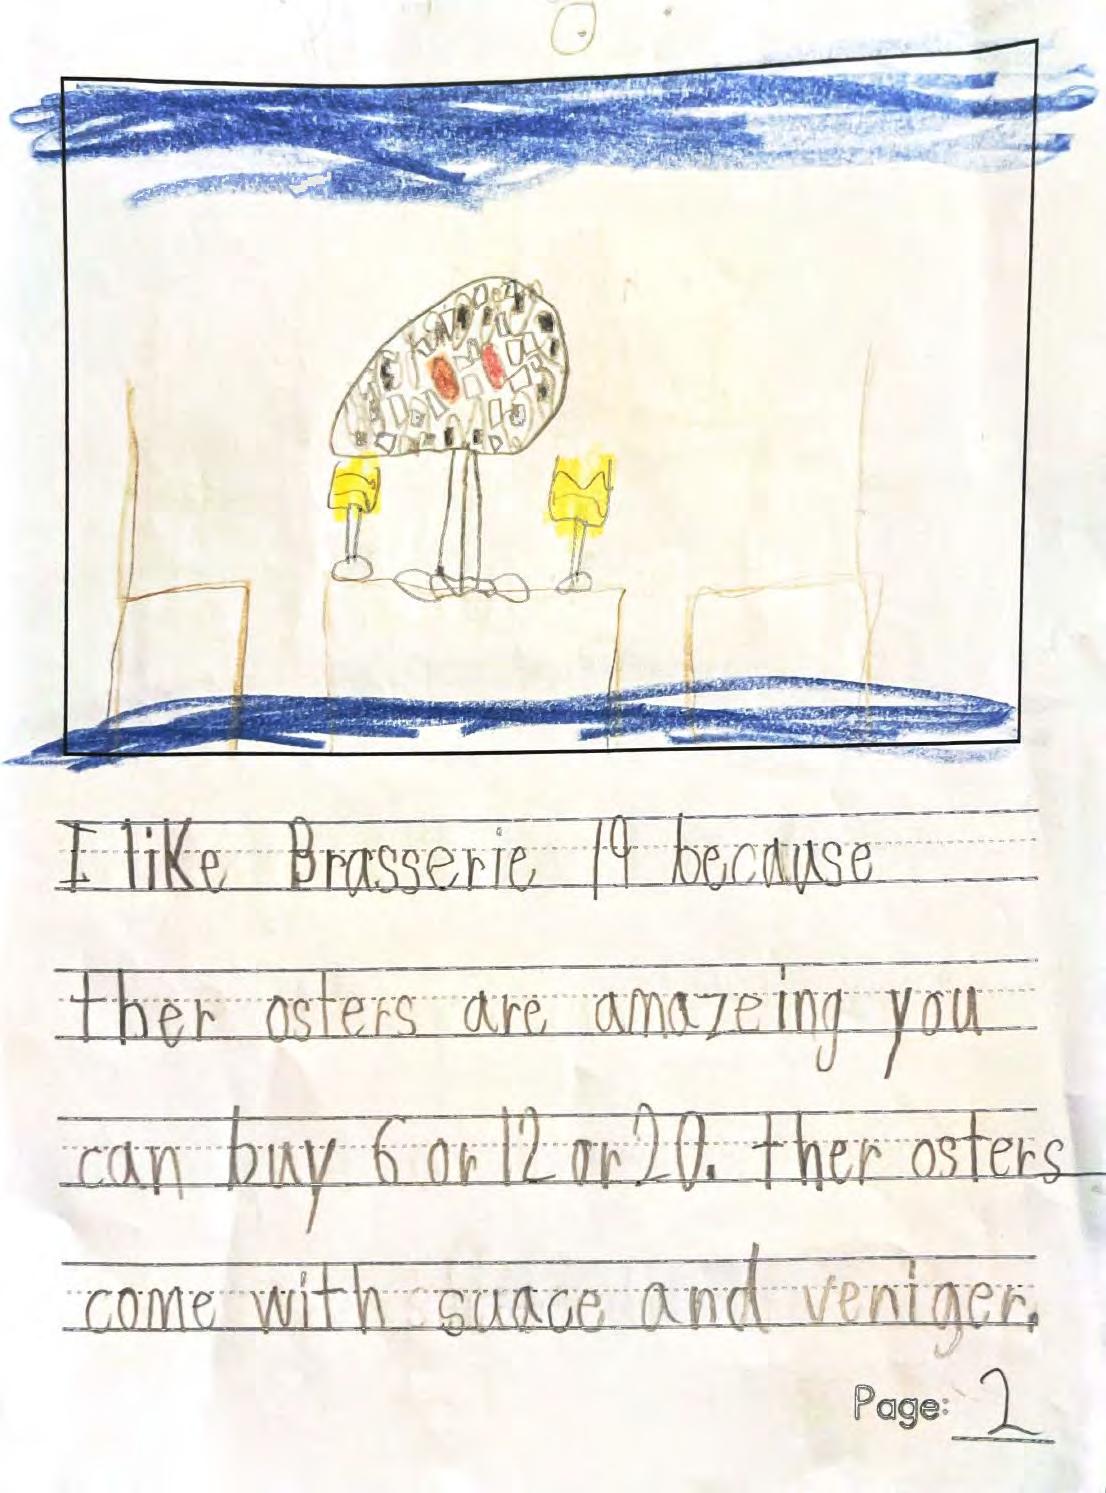 I like Brasserie 19 because
ther osters are amazeing you
can buy 6 or 12 or 20. ther osters
come with suace and veniger.
Page: 2